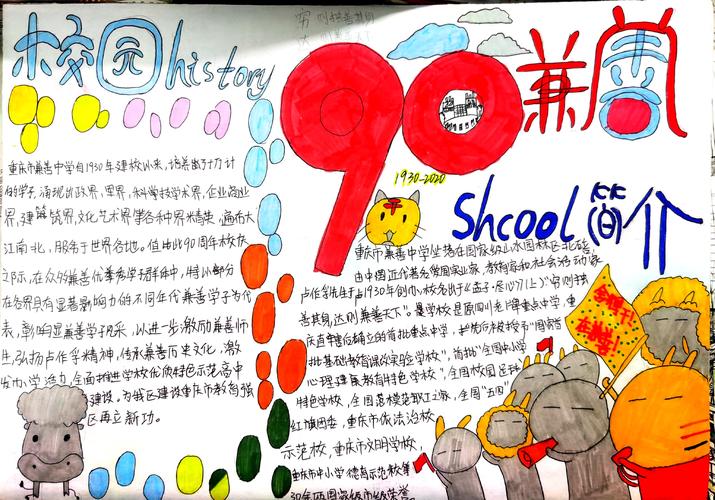 校园history
穷则独善其身
达则兼善天下
90兼善
1930-2020
开
Shcool简介
重庆市兼善中学自1930年建校以来,培养出十万计
的学子,涌现出政界,军界,科学技学术界,企业商业
界,建筑界,文化艺术界等各种界精英,遍布大
江南北,服务于世界各地。值此90周年校庆
之际,在众多兼善优秀学子群体中,特小部分
在各界具有显著影响力的不同年代兼善学子为代
表,彰显兼善学子风采,以进一步激励兼善师
生,弘扬卢作孚精神,传承兼善历史文化,激
发办学活力,全面推进学校优质特色示范高中
建设,为我区建设重庆市教育强
区再立新功。
重庆市兼善中学坐落在国家级山水园林区北碚,
由中国近代著名爱国实业家、教育家和社会活动家
卢作孚先生于1930年创办,校名出于《孟子·尽心》(上)“穷则独
善其身,达则兼善天下”。是学校是原四川老牌重点中学,重
庆直辖后确立的首批重点中学,
批基础教育课改实验学校”,首批“全国中小学
心理健康教育特色学校”,全国校园足球
特色学校,全国 模范职工之家,全国“五四”
红旗团委,重庆市依法治校
示范校,重庆市文明学校,
重庆市中小学德育示范校等
30余项国家级市级荣誉